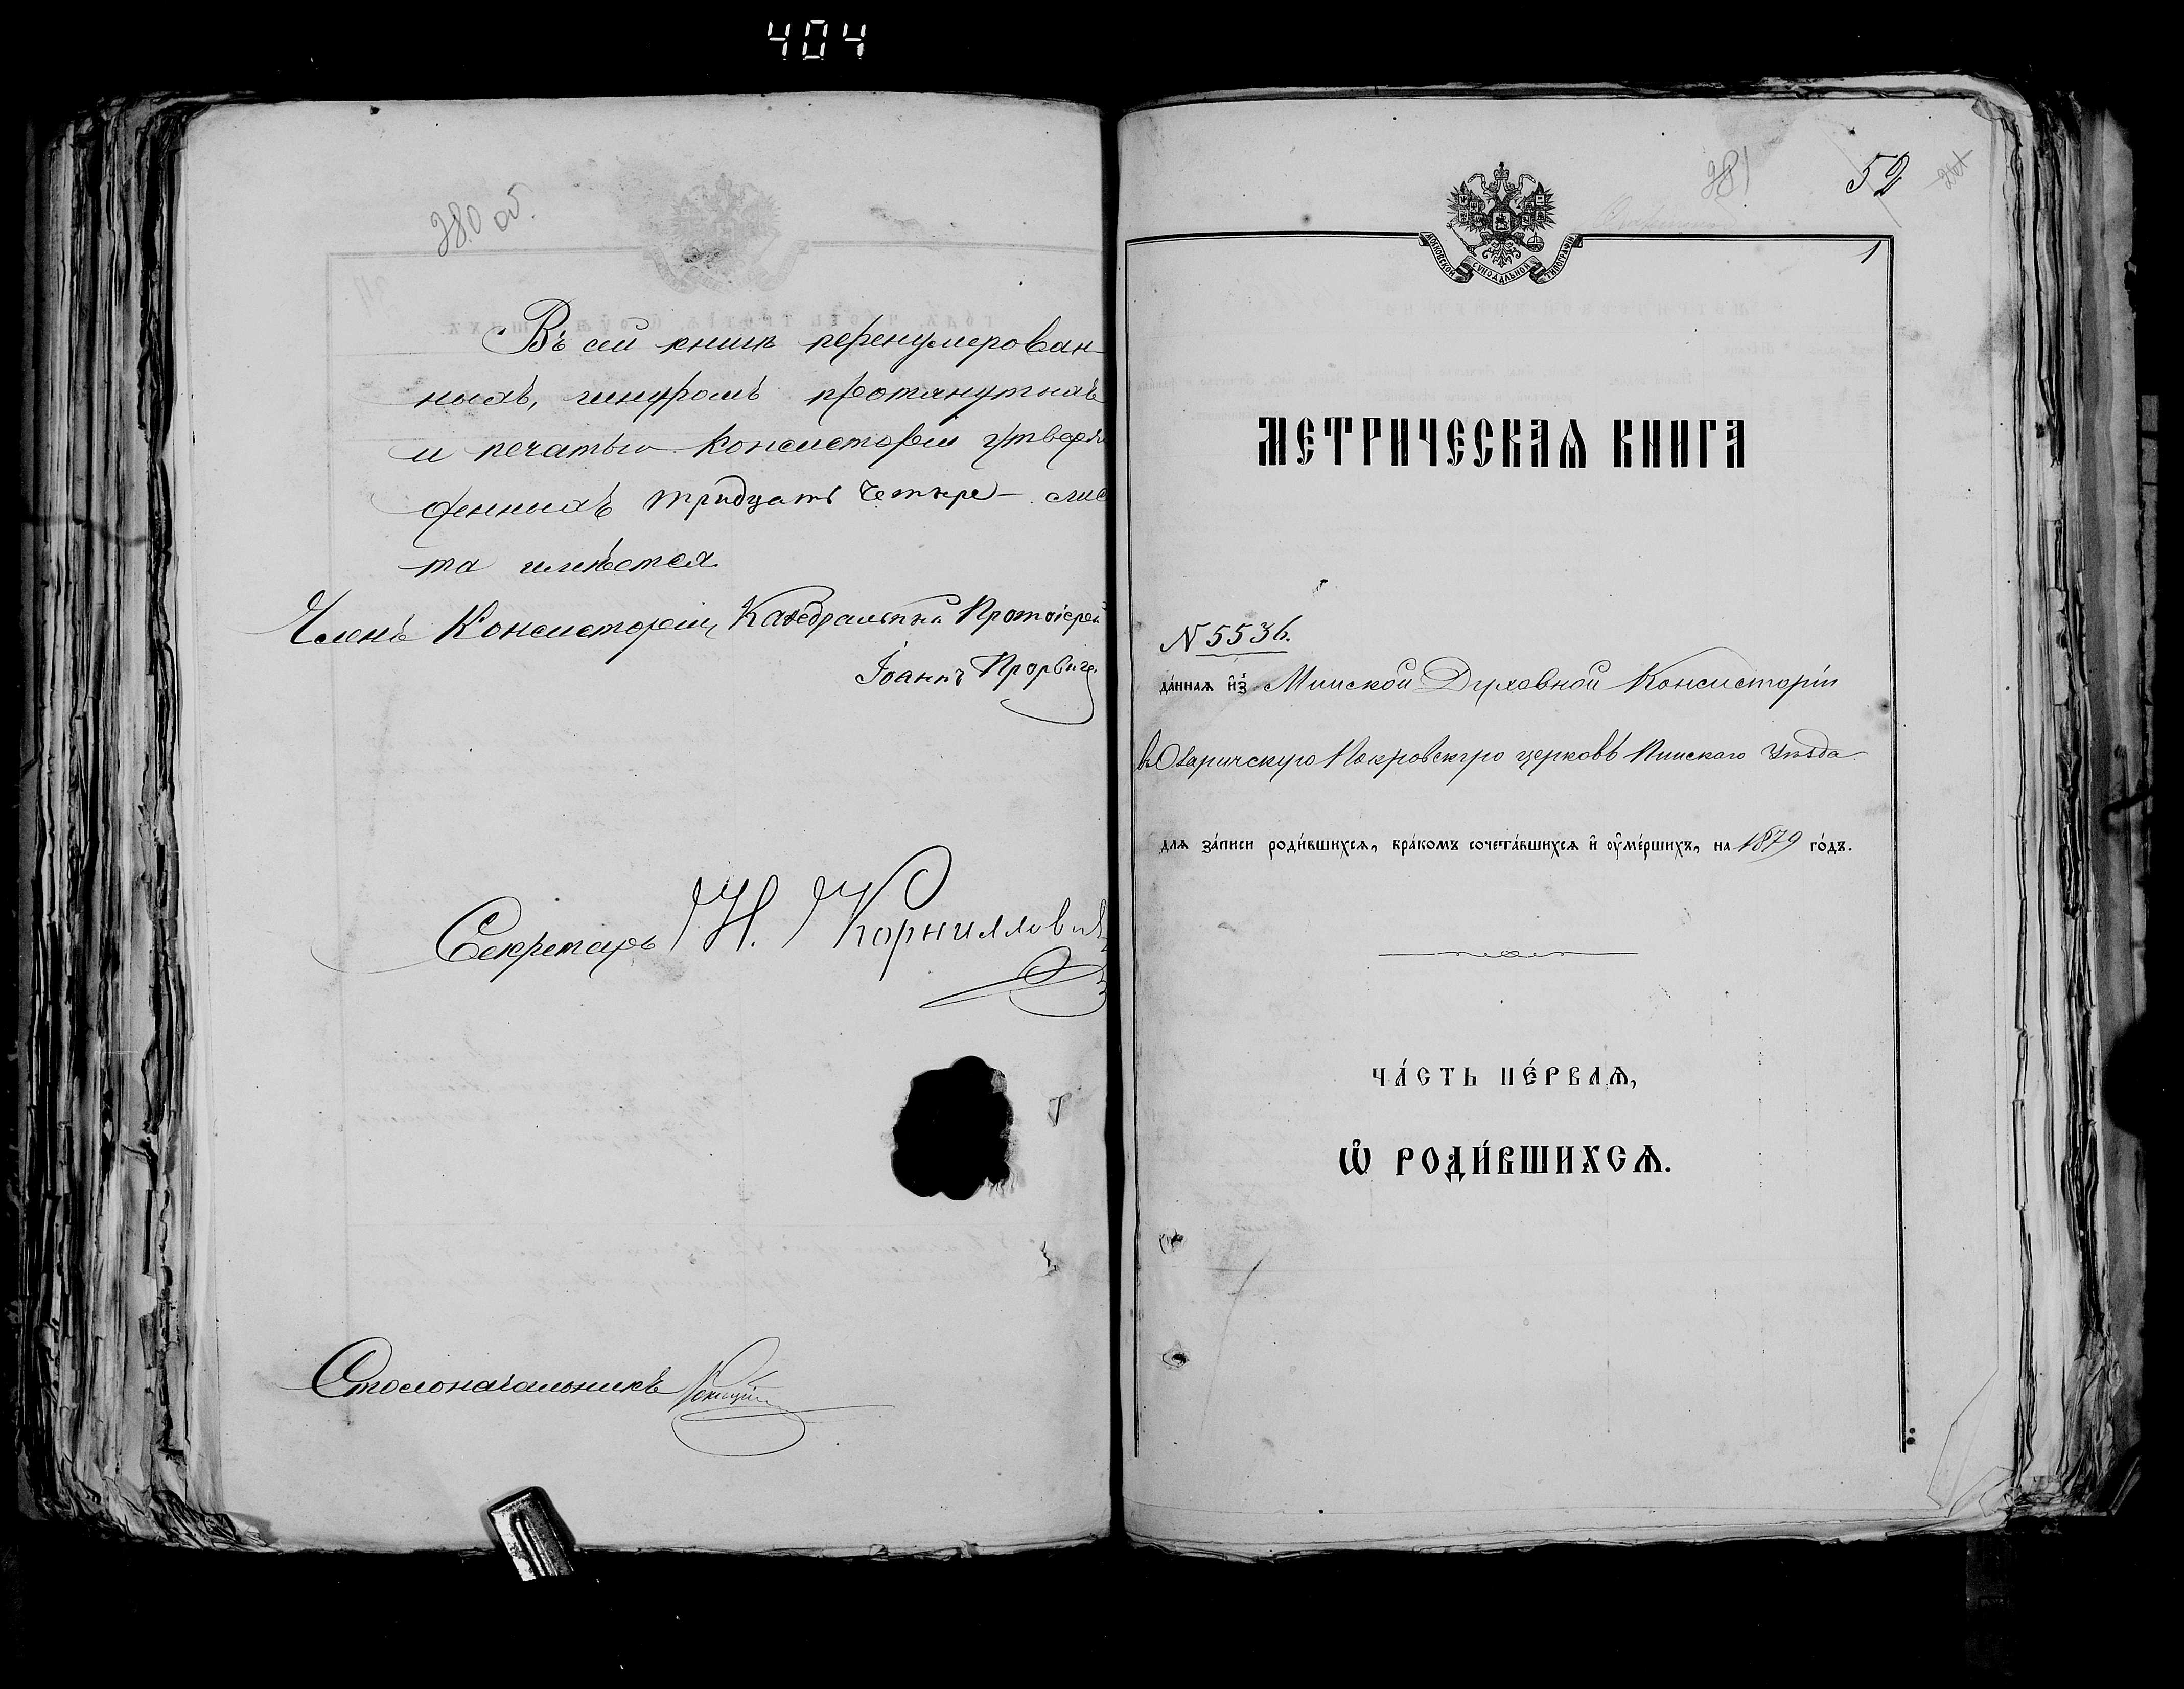 404
380 об.
Въ сей книгѣ перенумерован-
ныхъ, шнуромъ протянутыхъ
и печатью Консисторіи утверж
денныхъ тридцать четыре — лис
та имѣется
Членъ Консисторіи, Каѳедральный Протоіерей
Іоаннъ
Секретарь Н. Корниллович
Столоначальникъ
381
52
1
МОСКОВСКОЙ СѴНОДАЛЬНОЙ ТИПОГРАФІИ
МЕТРИЧЕСКАѦ КНИГА
N 5536.
да́ннаѧ и҆з̾ Минской Духовной Консисторіи
въ Опаричскую Покровскую церковь Пинскаго Уѣзда
длѧ за́писи роди́вшихсѧ, бра́комъ сочета́вшихсѧ и҆ ᲂу҆ме́ршихъ, на 1879 го́дъ.
ЧА́СТЬ ПЕ́РВАѦ,
Ѽ РОДИ́ВШИХСѦ.